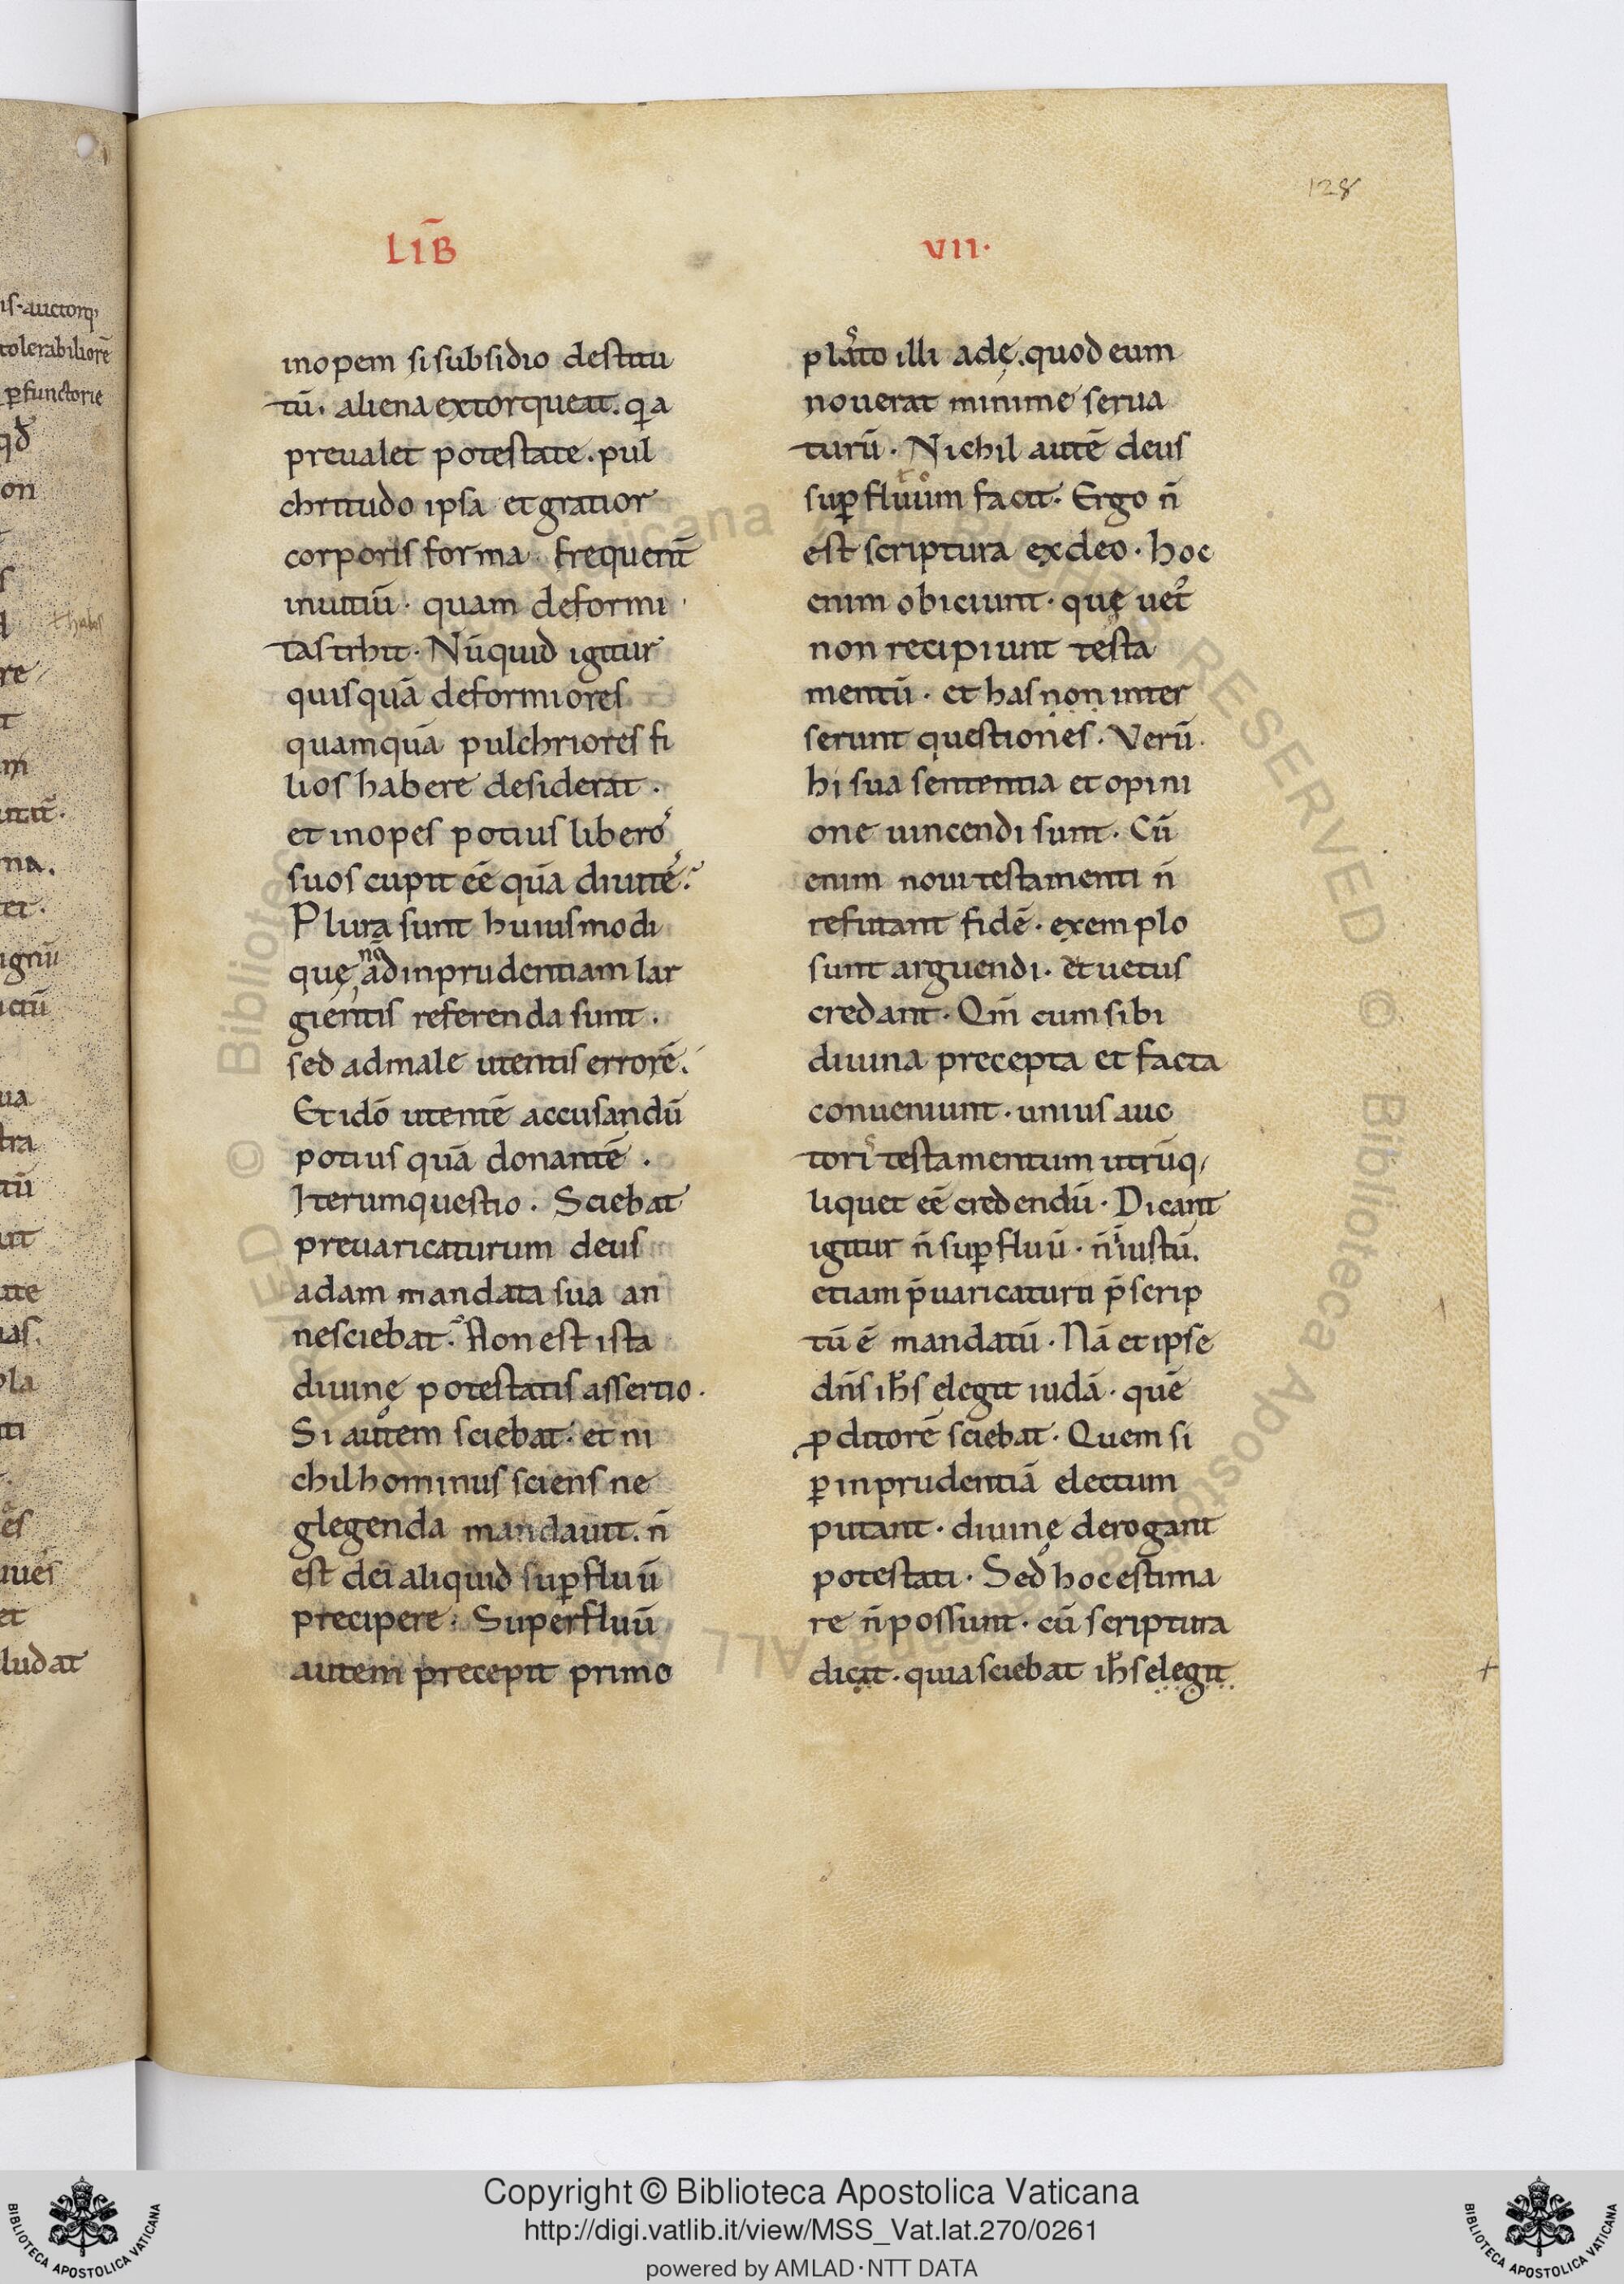 128
LIB̄
VII·
inopem si subsidio destitu
tū. aliena extorqueat. qͥa
preualet potestate. pul
chritudo ipsa et gratior
corporis forma frequent̄
inuitiū· quam deformi
tas trhit· Nūquid igitur
quisquā deformiores
quamquā pulchriores fi
lios habere desiderat ·
et inopes potius libero s
suos cupit eē quā diuite s.
Plura sunt huiusmodi
quę nō ad inprudentiam lar
gientis referenda sunt ·
sed ad male utentis errorē.
Et idō utentē accusandū
potius quā donantē ·
Iterum questio · Sciebat
preuaricaturum deus
adam mandata sua an
nesciebat· Non est ista
diuinę potestatis assertio·
Si autem sciebat· et ni
chilhominus sciens ne
glegenda mandauit. n̄
est dei aliquid suꝑfluū
precipere · Superfluū
autem precepit primo
plasto illi adę. quod eum
nouerat minime serua
turū · Nichil autē deus
suꝑfluum facit· Ergo n̄
est scriptura ex deo · hoc
enim obiciunt · quę uet̉
non recipiunt testa
mentū · et has non inter
serunt questiones · Verū
hi sua sententia et opini
one uincendi sunt · Cū
enim noui testamenti n̄
refutant fidē · exemplo
sunt arguendi · et uetus
credant · Qm̄ cum sibi
diuina precepta et facta
conueniunt · unius auc
tori s testamentum utrūq,
liquet eē credendū · Dicant
igitur n̄ suꝑfluū · n̄ iniustū.
etiam p̄uaricaturi p̄scrip
tū ē mandatū · Nā et ipse
dn̄s ih̄s elegit iudā · quē
ꝓditorē sciebat · Quem si
ꝑ inprudentiā electum
putant · diuinę derogant
potestati · Sed hoc estima
re n̄ possunt · cū scriptura
dicit · quia sciebat ih̄s elegit
is·auctorq,
tolerabiliorē
ꝑfunctorie
ludat
Copyright © Biblioteca Apostolica Vaticana
http://digi.vatlib.it/view/MSS_Vat.lat.270/0261
powered by AMLAD·NTT DATA
BIBLIOTECA APOSTOLICA VATICANA
BIBLIOTECA APOSTOLICA VATICANA